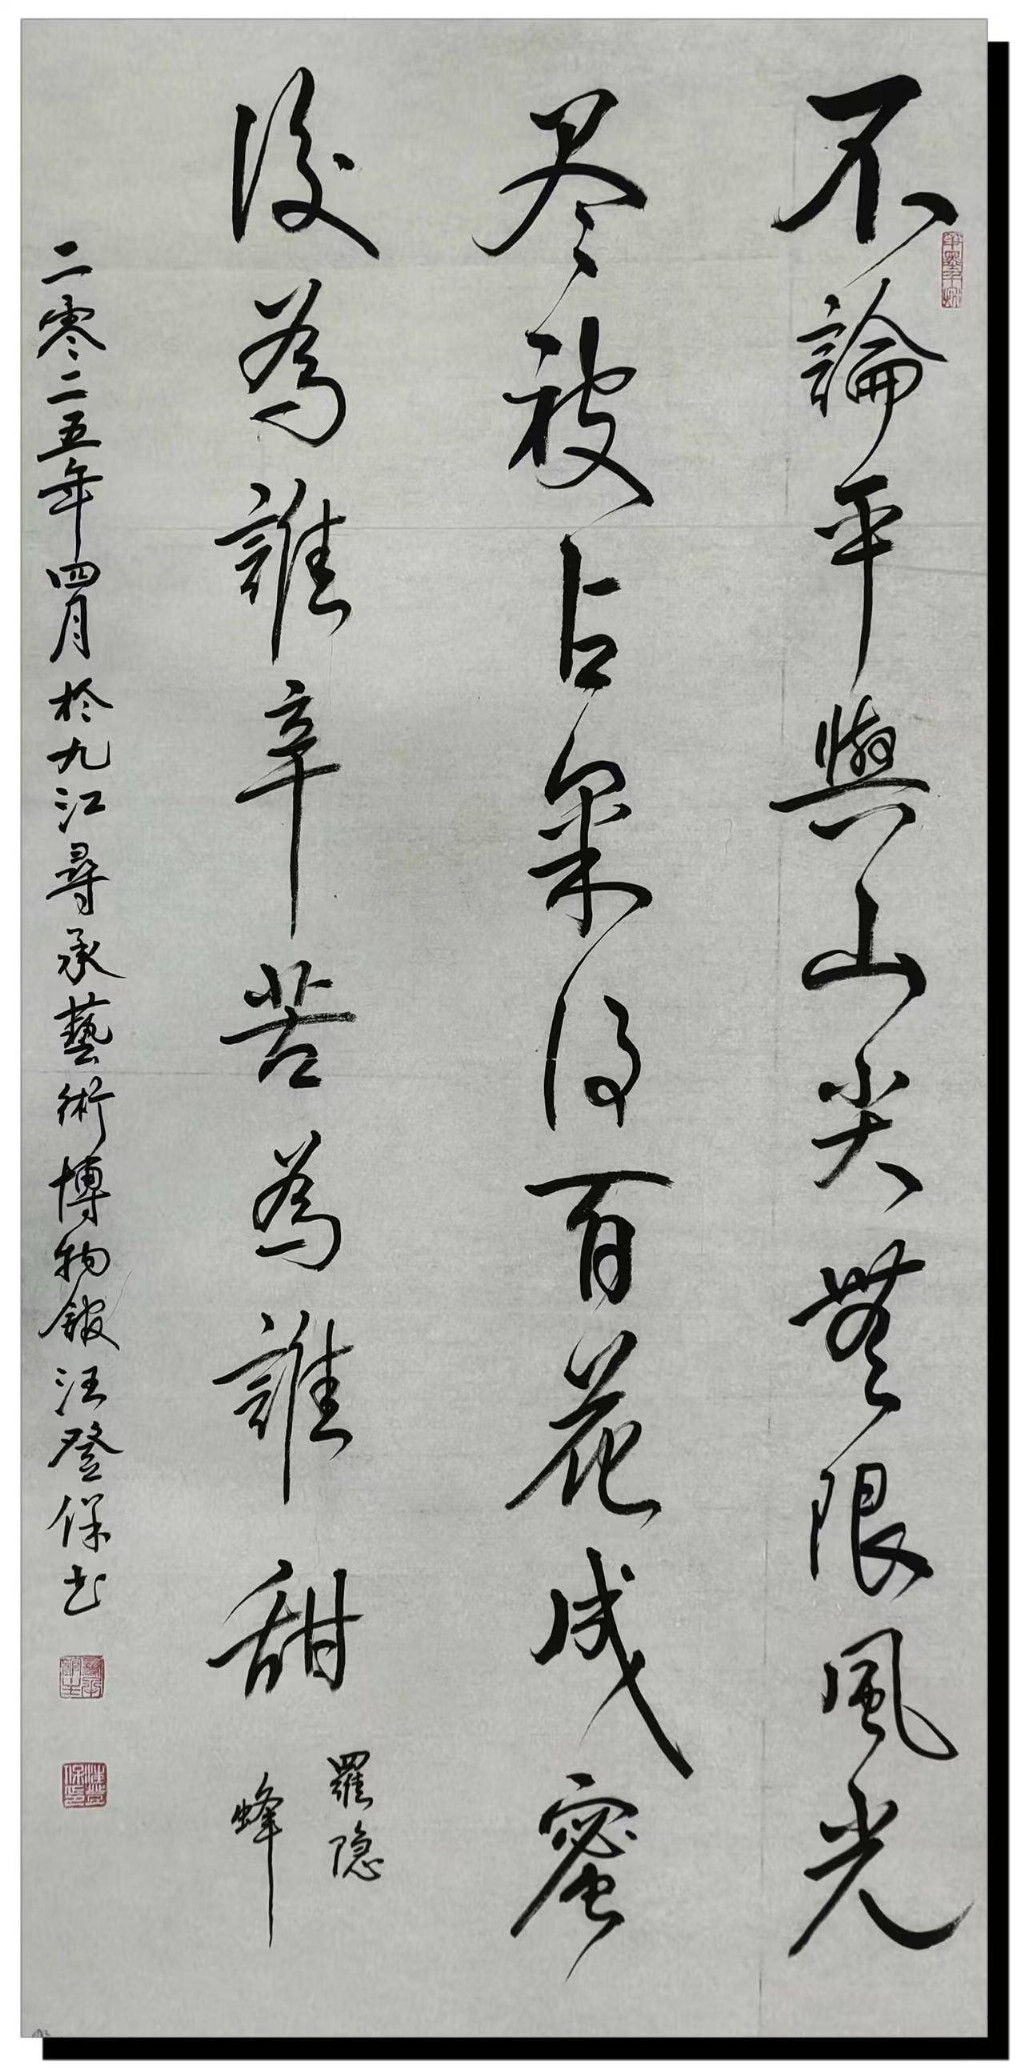 不論平與山尖無限風光
尽被占采得百花成蜜
後為誰辛苦為誰甜
羅隐
蜂
二零二五年四月於九江尋承藝術博物館汪登保书
汪登保印